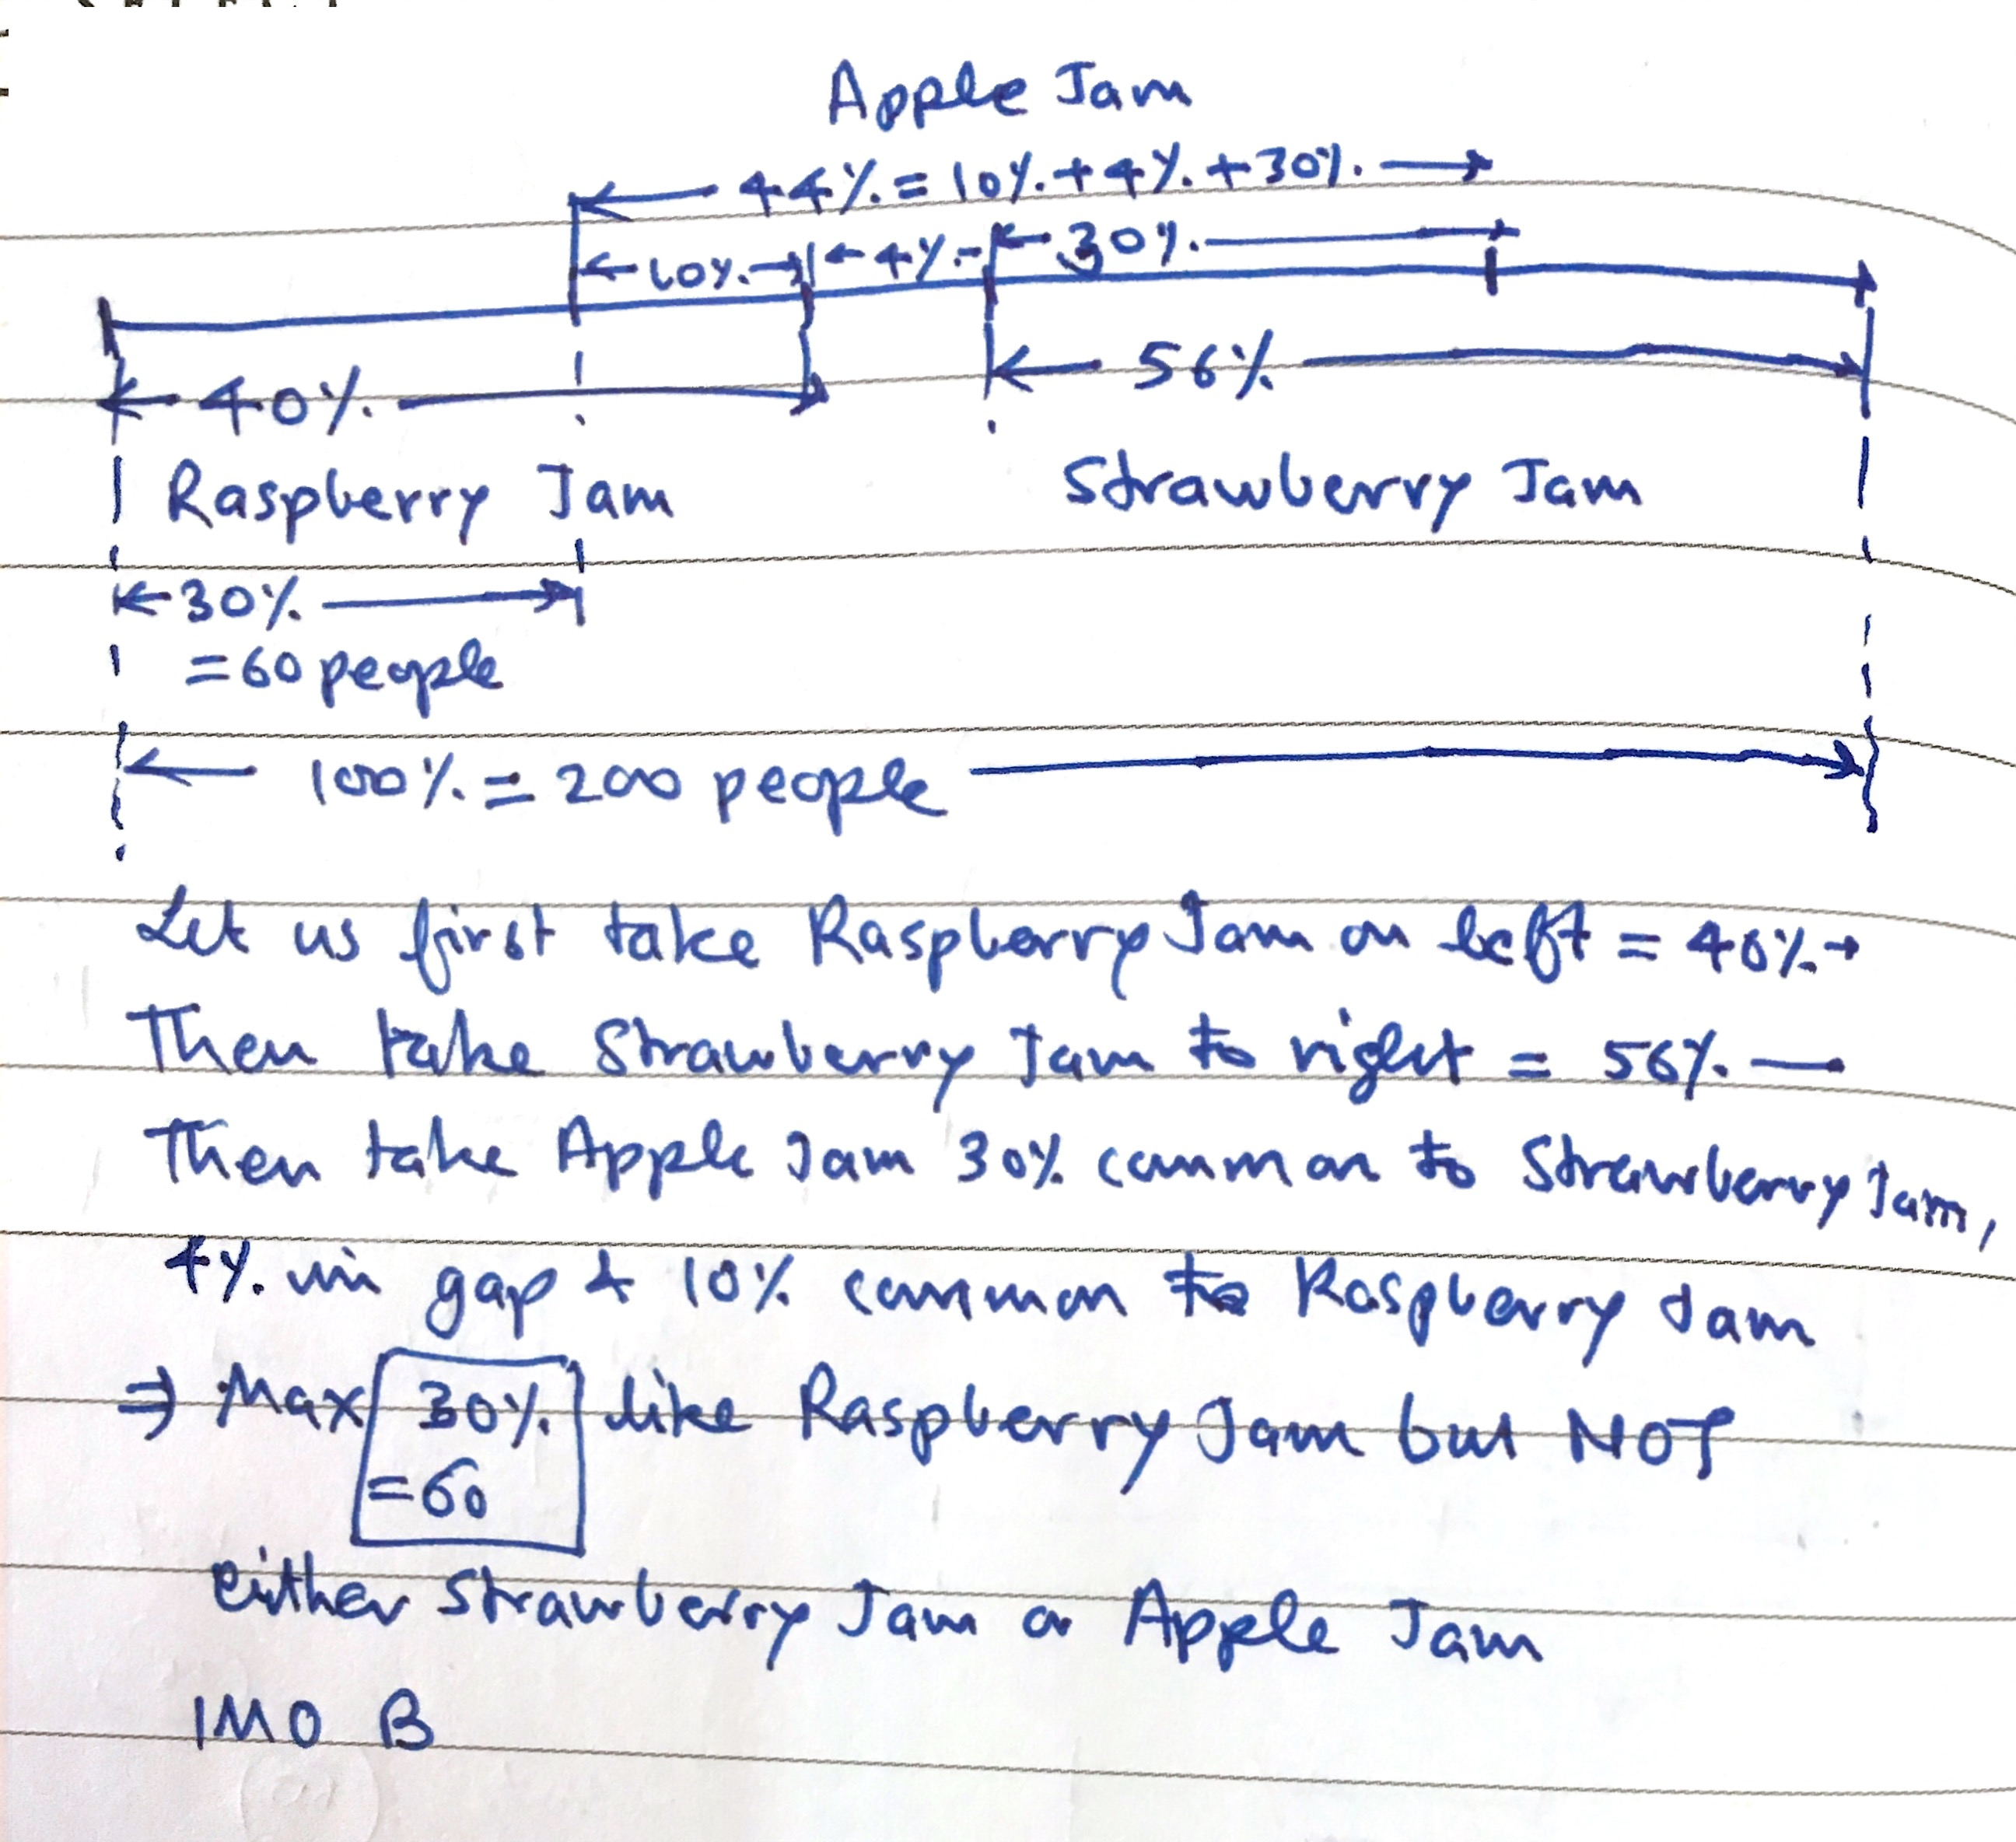 Apple Jam
44% = 10% + 4% + 30%
10% 4% 30%
40% 56%
Raspberry Jam Strawberry Jam
30%
= 60 people
100% = 200 people
Let us first take Raspberry Jam on left = 40%
Then take Strawberry Jam to right = 56% —
Then take Apple Jam 30% common to Strawberry Jam,
4% in gap & 10% common to Raspberry Jam
⇒ Max 30% like Raspberry Jam but NOT
= 60
either Strawberry Jam or Apple Jam
IMO B